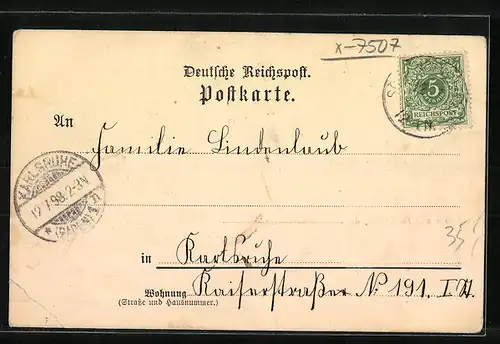 x-7507
Deutsche Reichspost.
Postkarte.
5
REICHSPOST
An Familie Lindenlaub
KARLSRUHE
12.7.98.2-3N
(BADEN)
in Karlsruhe
Wohnung Kaiserstraßer № 191. I
(Straße und Hausnummer.)
35